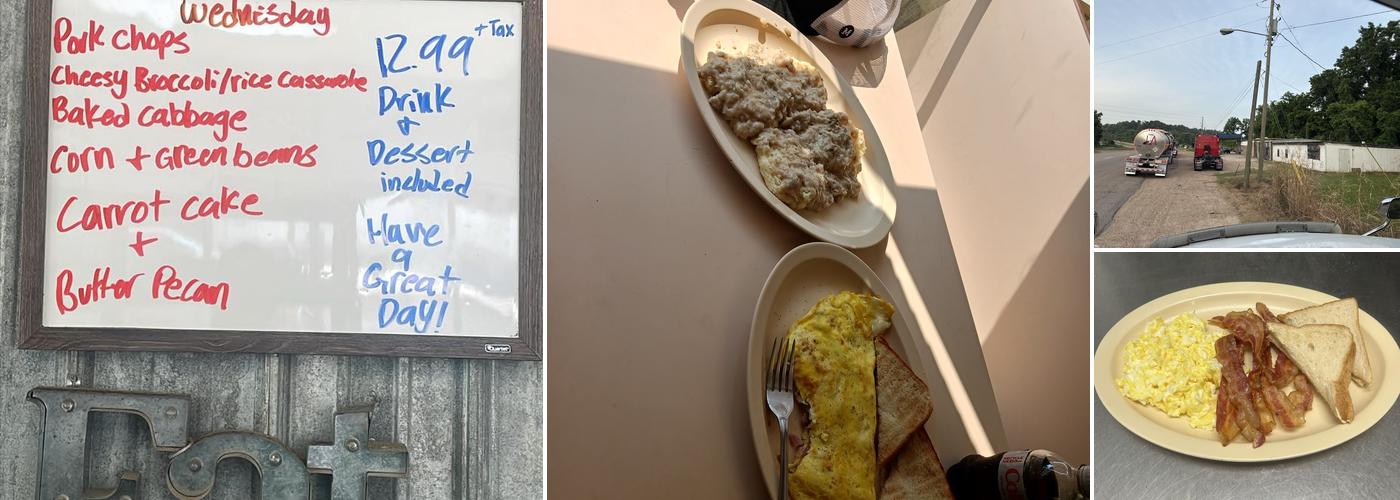 Wednesday
Pork chops
Cheesy Broccoli/rice Casserole
Baked cabbage
Corn + Green beans
Carrot cake
+
Butter Pecan
12.99 + Tax
Drink
+
Dessert
included
Have
a
Great
Day!
Quartet
Eat
M